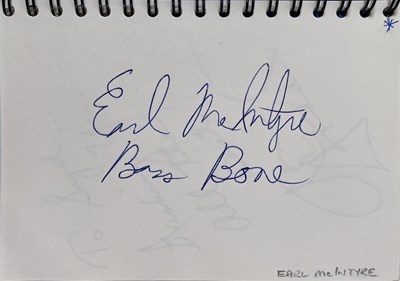 Earl McIntyre
Bass Bone
EARL McINTYRE